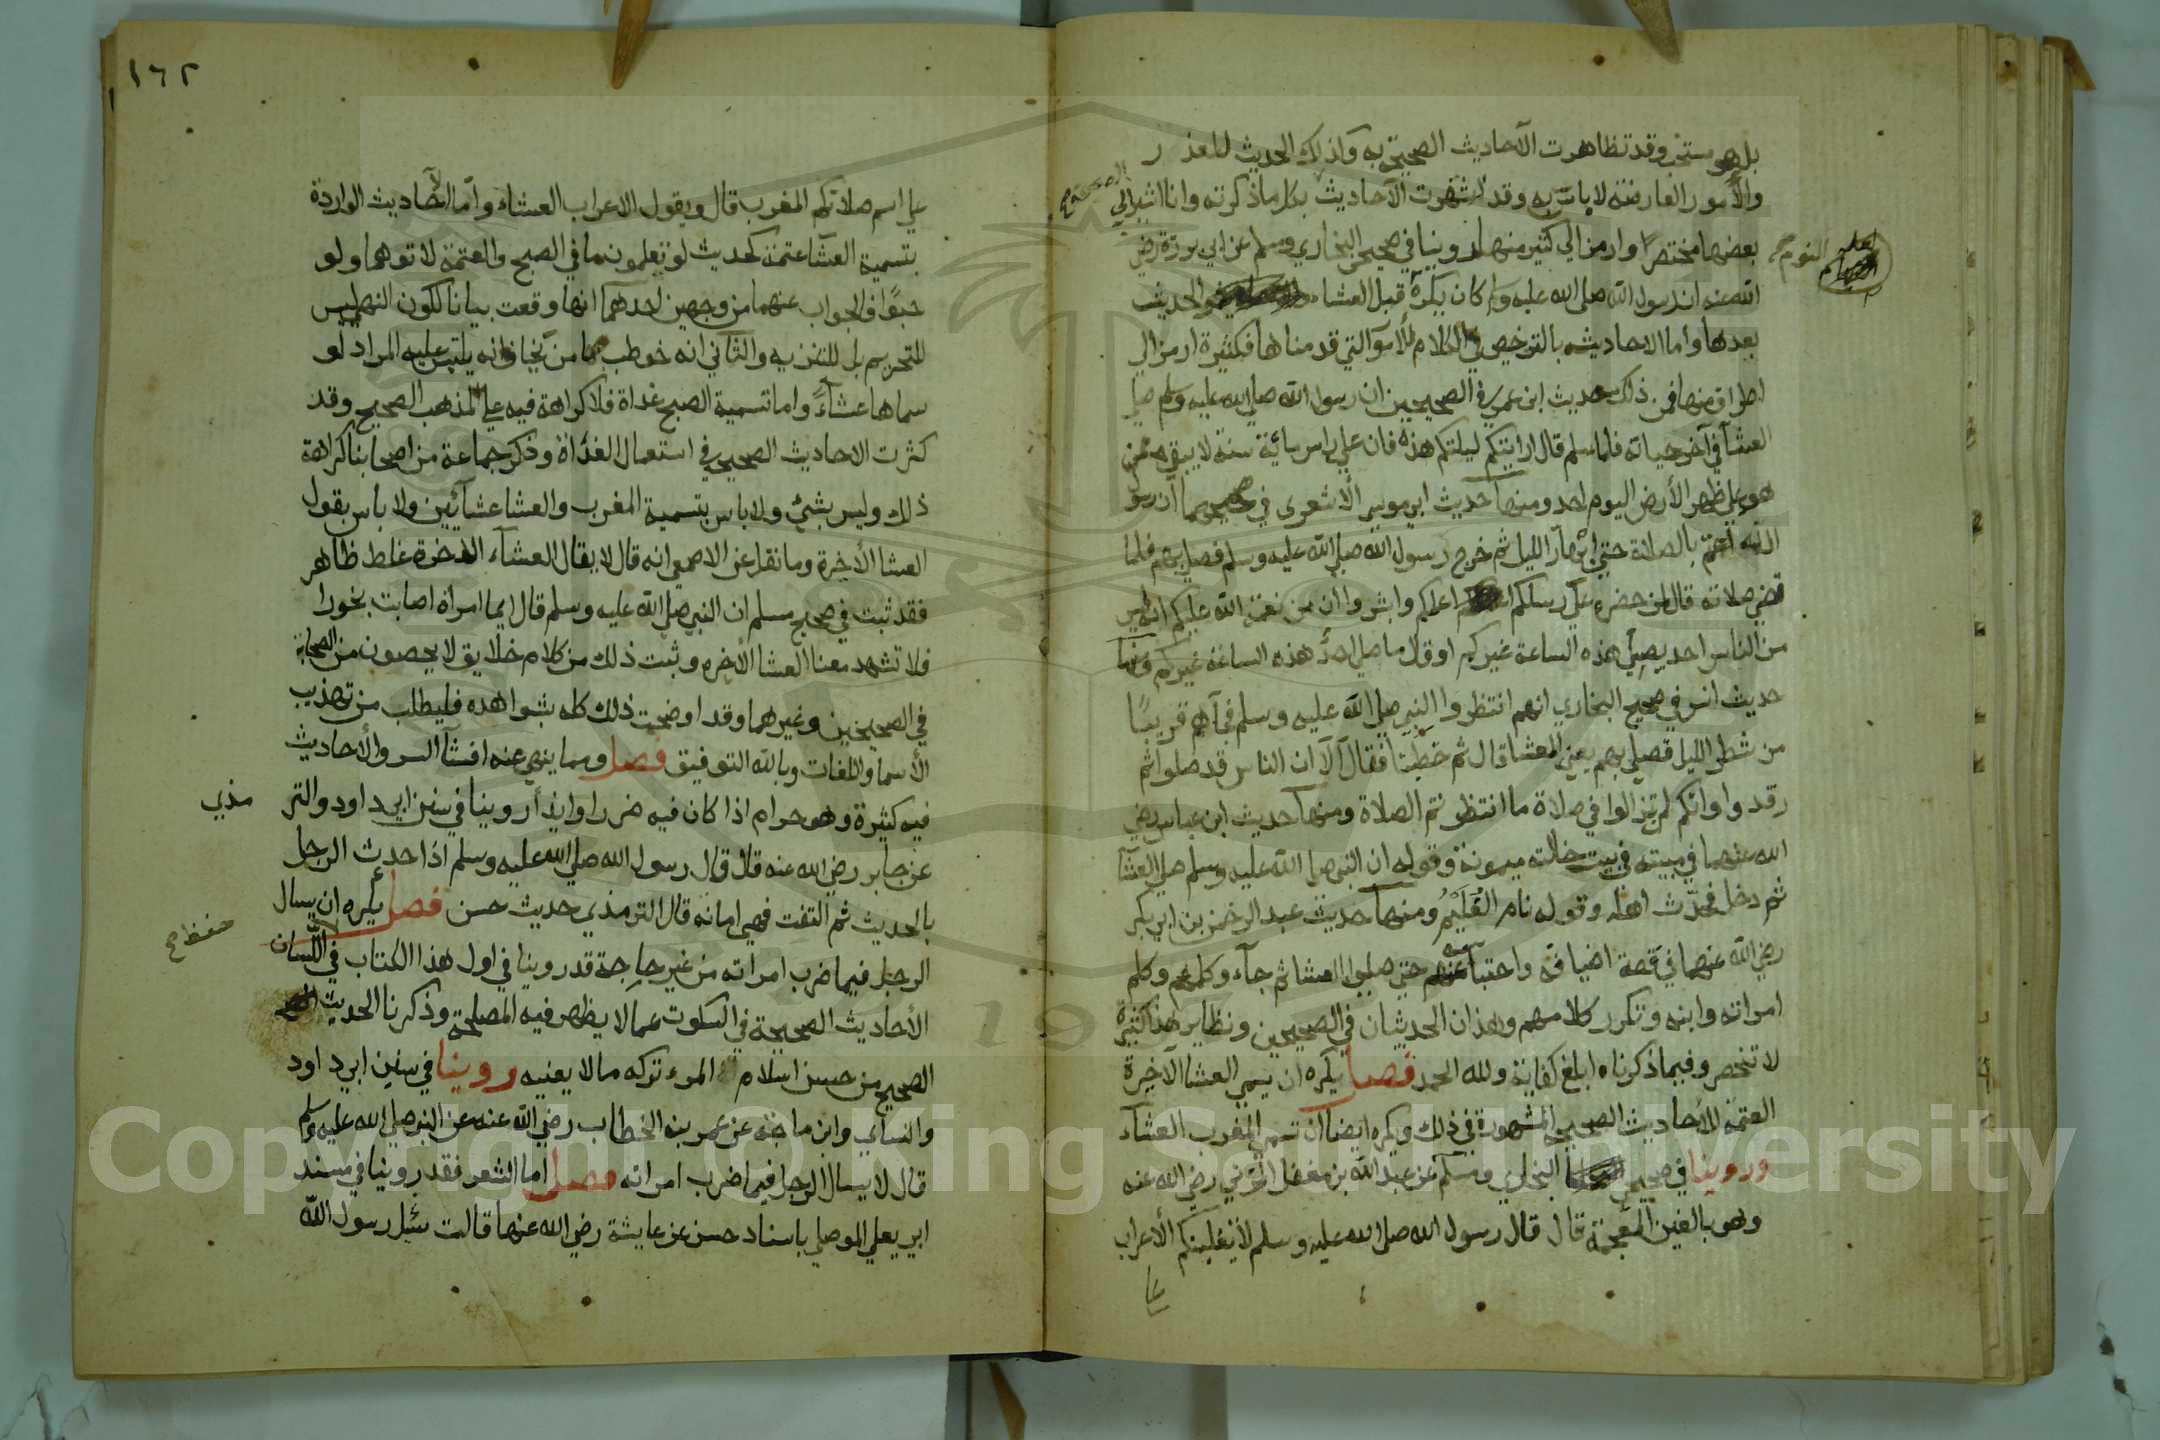 بل هو مستحب وقد تظاهرت الأحاديث الصحيحة به وكذلك الحديث للعذر
والأمور العارضة لا باس به وقد اشتهرت الأحاديث بكل ما ذكرته وانا اشير الي
بعضها مختصرا وارمز الي كثير منها روينا في صحيحي البخاري ومسلم عن ابي برزة رضي
الله عنه ان رسول الله صلى الله عليه وسلم كان يكره قبل العشاء والحديث
النوم
بعدها وأما الاحاديث بالترخيص في الكلام للأمور التي قدمناها فكثيرة ارمز الي
اطراق منها فمن ذلك حديث ابن عمر في الصحيحين ان رسول الله صلي الله عليه وسلم صلي
العشآ في آخر حياته فلما سلم قال ارايتكم ليلتكم هذه فان علي راس مائة سنة لا يبقى ممن
هو علي ظهر الأرض اليوم احد ومنها حديث ابي موسي الأشعري في صحيحيهما ان رسول
الله اعتم بالصلاة حتي ابهآر الليل ثم خرج رسول الله صلي الله عليه وسلم فصلي بهم فلما
قضي صلاته قال لمن حضره علي رسلكم اعلمكم وابشروا ان من نعمة الله عليكم انه ليس
من الناس احد يصلي هذه الساعة غيركم او قال ما صلي احد هذه الساعة غيركم ومنها
حديث انس في صحيح البخاري انهم انتظروا النبي صلي الله عليه وسلم فجآهم قريبًا
من شطر الليل فصلي بهم يعني العشا قال ثم خطبنا فقال ألآ ان الناس قد صلوا ثم
رقدوا وانكم لم تزالوا في صلاة ما انتظرتم الصلاة ومنها حديث ابن عباس رضي
الله عنهما في مبيته في بيت خالته ميمونة وقوله ان النبي صلي الله عليه وسلم صلي العشآ
ثم دخل فحدّث اهله وقوله نام الغُلَيِّمُ ومنها حديث عبد الرحمن بن ابي بكر
رضي الله عنهما في قصة اضيافه واحتباسه عنهم حتي صلي العشا ثم جآء وكلمهم وكلم
امراته وابنه وتكرر كلامهم وهذان الحديثان في الصحيحين ونظاير هذا كثيرة
لا تنحصر وفيما ذكرناه ابلغ كفاية ولله الحمد فصل يكره ان يسمي العشا الآخرة
العتمة للأحاديث الصحيحة المشهورة في ذلك ويكره ايضا ان تسمي المغرب العشآء
وروينا في صحيح البخاري ومسلم عن عبد الله بن مغفل المزني رضي الله عنه
وهو بالغين المعجمة قال قال رسول الله صلي الله عليه وسلم لا تغلبنكم الأعراب
علي
١٦٢
علي اسم صلاتكم المغرب قال ويقول الاعراب العشاء وأمّا الأحاديث الواردة
بتسمية العشآ عتمة كحديث لو تعلمون ما في الصبح والعتمة لاتوهما ولو
حبوًا فالجواب عنهما من وجهين احدهما انها وقعت بيانا لكون النهي ليس
للتحريم بل للتنزيه والثاني انه خوطب بها من يخاف انه يلتبس عليه المراد لو
سماها عشآءً واما تسمية الصبح غداة فلا كراهة فيه علي المذهب الصحيح وقد
كثرت الاحاديث الصحيحة في استعمال الغداة وذكر جماعة من اصحابنا كراهة
ذلك وليس بشئ ولا باس بتسمية المغرب والعشا عشآئين ولا باس بقول
العشا الأخيرة وما نقل عن الاصمعي انه قال لا يقال العشآء الاخرة غلط ظاهر
فقد ثبت في صحيح مسلم ان النبي صلي الله عليه وسلم قال ايما امراة اصابت بخورا
فلا تشهد معنا العشا الأخره وثبت ذلك من كلام خلايق لا يحصون من الصحابة
في الصحيحين وغيرهما وقد اوضحت ذلك كله بشواهده فليطلب من تهذيب
الأسما واللغات وبالله التوفيق فصل ومما ينهي عنه افشآ السر والأحاديث
فيه كثيرة وهو حرام اذا كان فيه ضرر او ايذآ روينا في سنن ابي داود والتر
مذي
عن جابر رضي الله عنه قال قال رسول الله صلي الله عليه وسلم اذا حدث الرجل
بالحديث ثم التفت فهي امانه قال الترمذي حديث حسن فصل يكره ان يسال
الرجل فيما ضرب امراته من غير حاجة قد روينا في اول هذا الكتاب في حفظ اللسان
الأحاديث الصحيحة في السكوت عما لا يظهر فيه المصلحة وذكرنا الحديث
الصحيح من حسن اسلام المرء تركه ما لا يعنيه روينا في سنن ابي داود
والنساي وابن ماجة عن عمر بن الخطاب رضي الله عنه عن النبي صلي الله عليه وسلم
قال لا يسال الرجل فيما ضرب امراته فصل اما الشعر فقد روينا في مسند
ابي يعلي الموصلي باسناد حسن عن عايشة رضي الله عنها قالت سئل رسول الله
Copyright © King Saud University